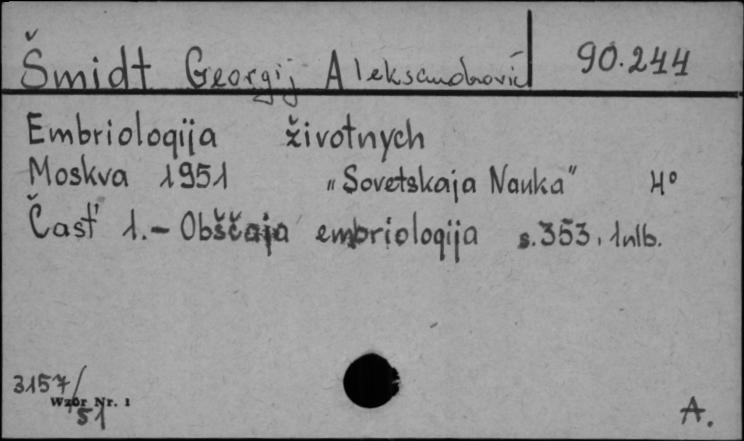 Šmidt Georgij Aleksandrovič 90.244
Embriologija životnych
Moskva 1951 „Sovetskaja Nauka" 4°
Časť 1.- Obščaja embriologija s.353, 1nlb.
3157/51
Wzór Nr. 1
A.